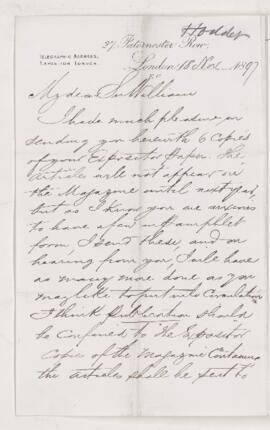 Hodder
27. Paternoster Row,
TELEGRAPHIC ADDRESS,
LONDON.
London 18 Nov 1897
My dear Sir William
I have much pleasure in
sending you herewith 6 Copies
of your Expositor Papers. The
articles will not appear in
the Magazine until next year,
but as I know you are anxious
to have a few in Pamphlet
form I send these, and on
hearing from you I will have
as many more done as you
may like to put into Circulation
I think publication should
be confined to the Expositor
Copies of the Magazine Containing
the articles shall be sent to